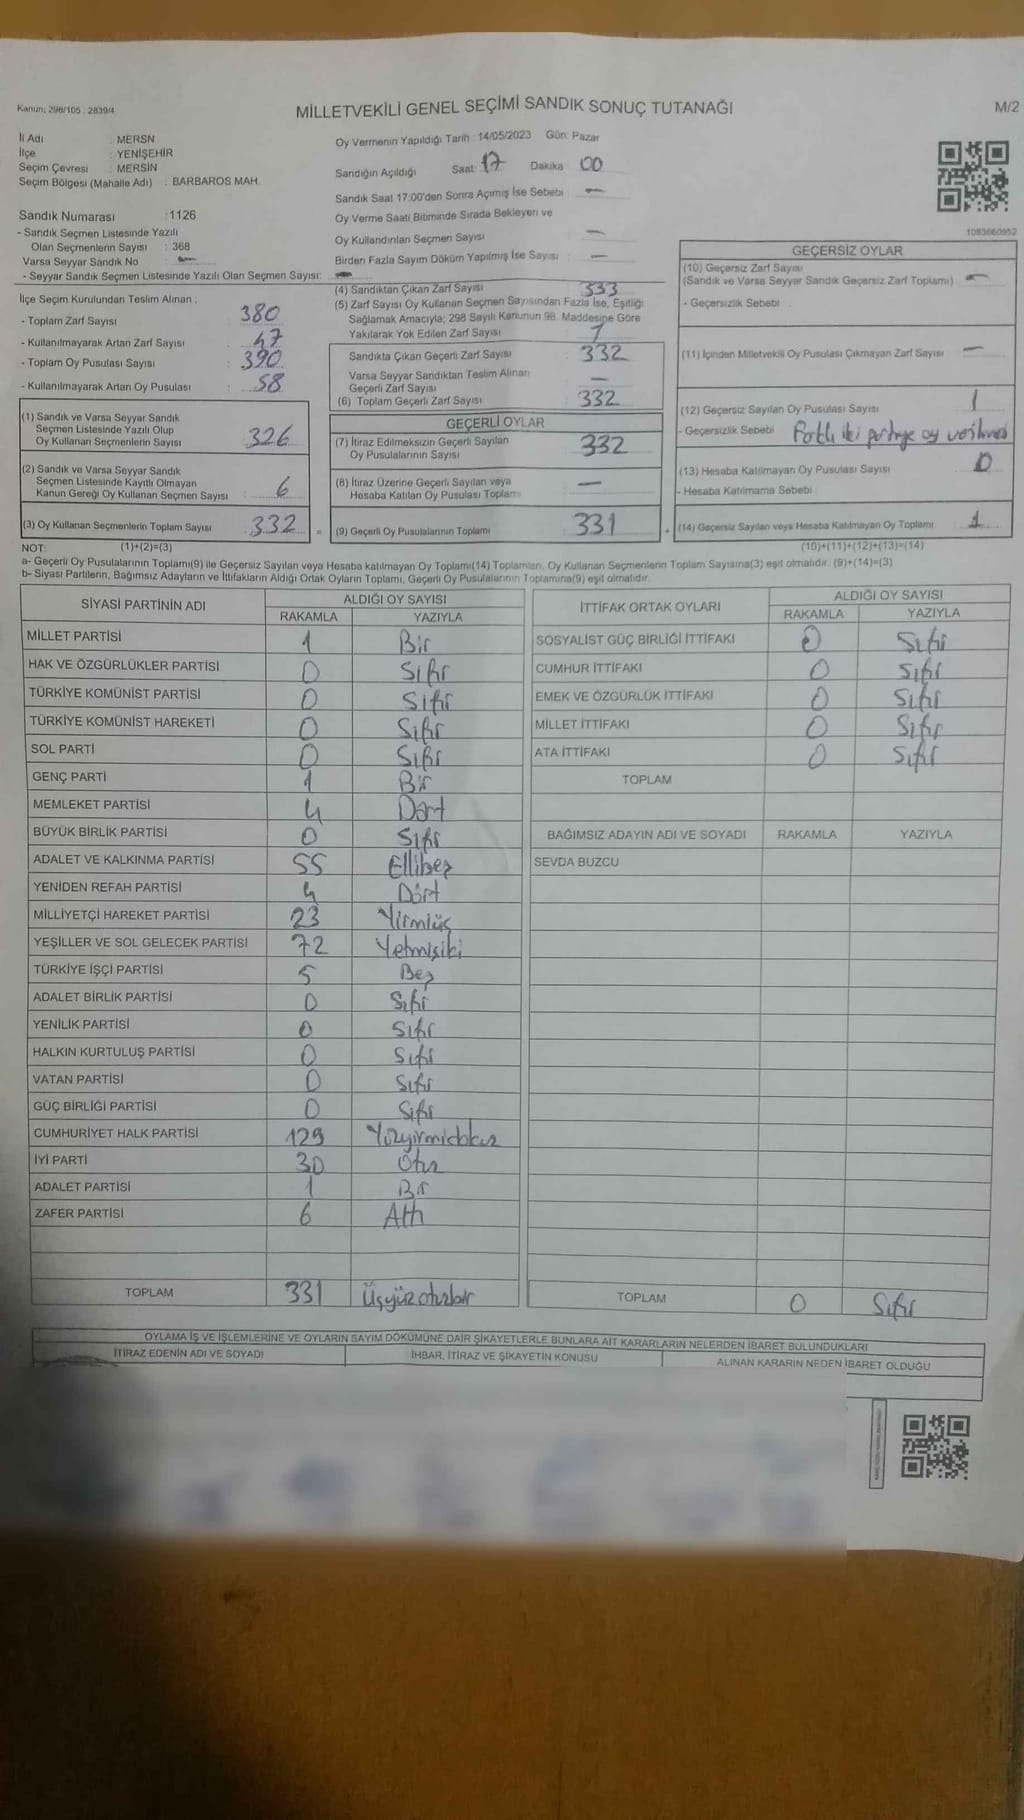 Kanun: 298/105 : 2839/4
MİLLETVEKİLİ GENEL SEÇİMİ SANDIK SONUÇ TUTANAĞI
M/2
İl Adı : MERSN
İlçe : YENİŞEHİR
Seçim Çevresi : MERSİN
Seçim Bölgesi (Mahalle Adı) : BARBAROS MAH.
Oy Vermenin Yapıldığı Tarih : 14/05/2023 Gün: Pazar
Sandığın Açıldığı Saat: 17 Dakika 00
Sandık Saat 17:00'den Sonra Açımış İse Sebebi –
Oy Verme Saati Bitiminde Sırada Bekleyen ve
Oy Kullandırılan Seçmen Sayısı –
Birden Fazla Sayım Döküm Yapılmış İse Sayısı : –
Sandık Numarası : 1126
- Sandık Seçmen Listesinde Yazılı
Olan Seçmenlerin Sayısı : 368
Varsa Seyyar Sandık No : –
- Seyyar Sandık Seçmen Listesinde Yazılı Olan Seçmen Sayısı: –
1083660952
İlçe Seçim Kurulundan Teslim Alınan ;
- Toplam Zarf Sayısı : 380
- Kullanılmayarak Artan Zarf Sayısı : 47
- Toplam Oy Pusulası Sayısı : 390
- Kullanılmayarak Artan Oy Pusulası : 58
(1) Sandık ve Varsa Seyyar Sandık
Seçmen Listesinde Yazılı Olup
Oy Kullanan Seçmenlerin Sayısı : 326
(2) Sandık ve Varsa Seyyar Sandık
Seçmen Listesinde Kayıtlı Olmayan
Kanun Gereği Oy Kullanan Seçmen Sayısı : 6
(3) Oy Kullanan Seçmenlerin Toplam Sayısı : 332 =
(4) Sandıktan Çıkan Zarf Sayısı : 333
(5) Zarf Sayısı Oy Kullanan Seçmen Sayısından Fazla İse, Eşitliği
Sağlamak Amacıyla; 298 Sayılı Kanunun 98. Maddesine Göre
Yakılarak Yok Edilen Zarf Sayısı : 1
Sandıkta Çıkan Geçerli Zarf Sayısı : 332
Varsa Seyyar Sandıktan Teslim Alınan
Geçerli Zarf Sayısı : –
(6) Toplam Geçerli Zarf Sayısı : 332
GEÇERLİ OYLAR
(7) İtiraz Edilmeksizin Geçerli Sayılan
Oy Pusulalarının Sayısı : 332
(8) İtiraz Üzerine Geçerli Sayılan veya
Hesaba Katılan Oy Pusulası Toplamı : –
(9) Geçerli Oy Pusulalarının Toplamı : 331 +
GEÇERSİZ OYLAR
(10) Geçersiz Zarf Sayısı
(Sandık ve Varsa Seyyar Sandık Geçersiz Zarf Toplamı) : –
- Geçersizlik Sebebi :
(11) İçinden Milletvekili Oy Pusulası Çıkmayan Zarf Sayısı : –
(12) Geçersiz Sayılan Oy Pusulası Sayısı : 1
- Geçersizlik Sebebi : Farklı iki partiye oy verilmesi
(13) Hesaba Katılmayan Oy Pusulası Sayısı : 0
- Hesaba Katılmama Sebebi :
(14) Geçersiz Sayılan veya Hesaba Katılmayan Oy Toplamı : 1
NOT: (1)+(2)=(3)
(10)+(11)+(12)+(13)=(14)
a- Geçerli Oy Pusulalarının Toplamı(9) ile Geçersiz Sayılan veya Hesaba katılmayan Oy Toplamı(14) Toplamları, Oy Kullanan Seçmenlerin Toplam Sayısına(3) eşit olmalıdır. (9)+(14)=(3)
b- Siyasi Partilerin, Bağımsız Adayların ve İttifakların Aldığı Ortak Oyların Toplamı, Geçerli Oy Pusulalarının Toplamına(9) eşit olmalıdır.
SİYASİ PARTİNİN ADI ALDIĞI OY SAYISI
RAKAMLA YAZIYLA
MİLLET PARTİSİ 1 Bir
HAK VE ÖZGÜRLÜKLER PARTİSİ 0 Sıfır
TÜRKİYE KOMÜNİST PARTİSİ 0 Sıfır
TÜRKİYE KOMÜNİST HAREKETİ 0 Sıfır
SOL PARTİ 0 Sıfır
GENÇ PARTİ 1 Bir
MEMLEKET PARTİSİ 4 Dört
BÜYÜK BİRLİK PARTİSİ 0 Sıfır
ADALET VE KALKINMA PARTİSİ 55 Ellibeş
YENİDEN REFAH PARTİSİ 4 Dört
MİLLİYETÇİ HAREKET PARTİSİ 23 Yirmiüç
YEŞİLLER VE SOL GELECEK PARTİSİ 72 Yetmişiki
TÜRKİYE İŞÇİ PARTİSİ 5 Beş
ADALET BİRLİK PARTİSİ 0 Sıfır
YENİLİK PARTİSİ 0 Sıfır
HALKIN KURTULUŞ PARTİSİ 0 Sıfır
VATAN PARTİSİ 0 Sıfır
GÜÇ BİRLİĞİ PARTİSİ 0 Sıfır
CUMHURİYET HALK PARTİSİ 129 Yüzyirmidokuz
İYİ PARTİ 30 Otuz
ADALET PARTİSİ 1 Bir
ZAFER PARTİSİ 6 Altı
TOPLAM 331 Üçyüzotuzbir
İTTİFAK ORTAK OYLARI ALDIĞI OY SAYISI
RAKAMLA YAZIYLA
SOSYALİST GÜÇ BİRLİĞİ İTTİFAKI 0 Sıfır
CUMHUR İTTİFAKI 0 Sıfır
EMEK VE ÖZGÜRLÜK İTTİFAKI 0 Sıfır
MİLLET İTTİFAKI 0 Sıfır
ATA İTTİFAKI 0 Sıfır
TOPLAM
BAĞIMSIZ ADAYIN ADI VE SOYADI RAKAMLA YAZIYLA
SEVDA BUZCU
TOPLAM 0 Sıfır
OYLAMA İŞ VE İŞLEMLERİNE VE OYLARIN SAYIM DÖKÜMÜNE DAİR ŞİKAYETLERLE BUNLARA AİT KARARLARIN NELERDEN İBARET BULUNDUKLARI
İTİRAZ EDENİN ADI VE SOYADI İHBAR, İTİRAZ VE ŞİKAYETİN KONUSU ALINAN KARARIN NEDEN İBARET OLDUĞU